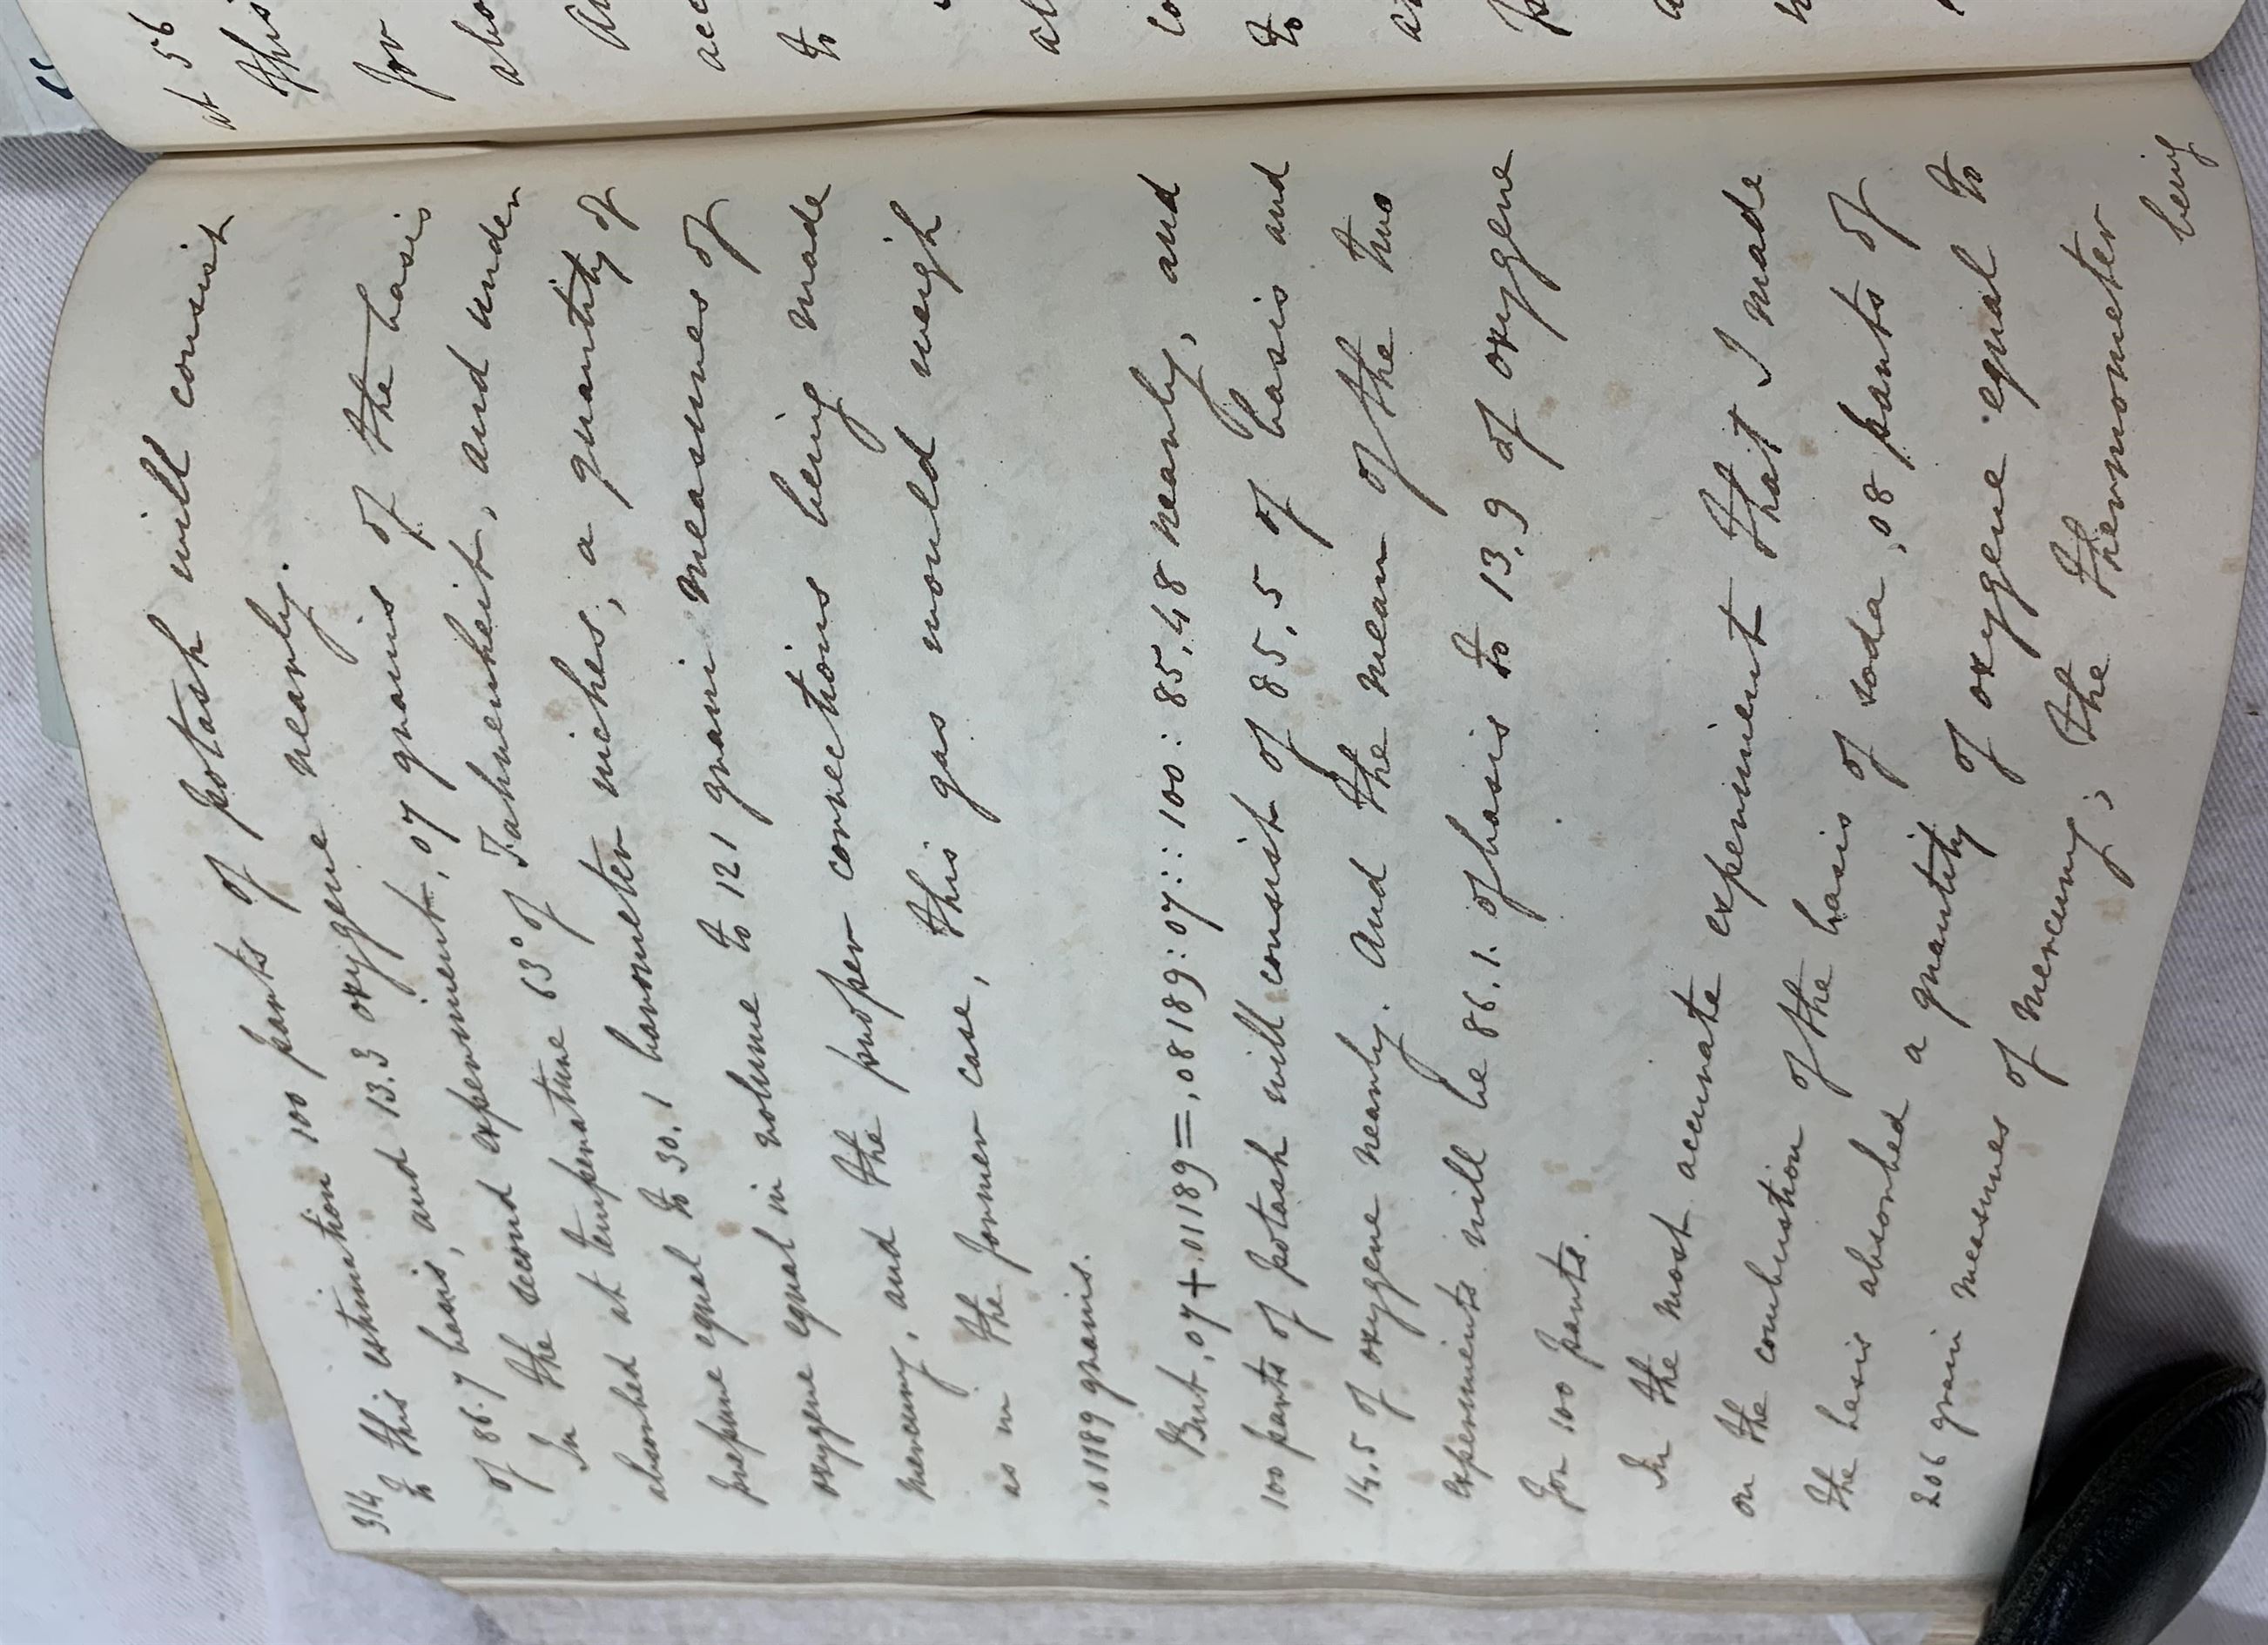 314
to this estimation 100 parts of potash will consist
of 86.7 basis, and 13.3 oxygene nearly.
In the second experiment, ,07 grains of the basis
absorbed at temperature 63° of Fahrenheit, and under
pressure equal to 30.1 barometer inches, a quantity of
oxygene equal in volume to 121 grain measures of
mercury, and the proper corrections being made
as in the former case, this gas would weigh
,01189 grains.
But ,07+.01189=,08189:07::100:85,48 nearly, and
100 parts of potash will consist of 85,5 of basis and
14,5 of oxygene nearly. And the mean of the two
experiments will be 86,1. of basis to 13,9 of oxygene
for 100 parts.
In the most accurate experiment that I made
on the combustion of the basis of soda ,08 parts of
the basis absorbed a quantity of oxygene equal to
206 grain measures of mercury; the thermometer
being
at 56
this
for
abo
to
to